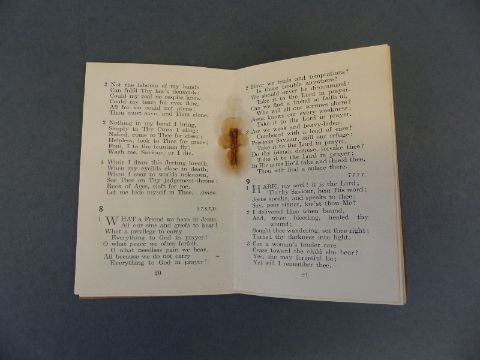 2 Not the labours of my hands
Can fulfil Thy law's demands;
Could my zeal no respite know,
Could my tears for ever flow,
All for sin could not atone:
Thou must save, and Thou alone.
3 Nothing in my hand I bring,
Simply to Thy Cross I cling;
Naked, come to Thee for dress;
Helpless, look to Thee for grace;
Foul, I to the fountain fly;
Wash me, Saviour, or I die.
4 While I draw this fleeting breath,
When my eyelids close in death,
When I soar to worlds unknown,
See Thee on Thy Judgement-throne:
Rock of Ages, cleft for me,
Let me hide myself in Thee. Amen.
8
1 WHAT a Friend we have in Jesus,
All our sins and griefs to bear!
What a privilege to carry
Everything to God in prayer!
O what peace we often forfeit,
O what needless pain we bear,
All because we do not carry
Everything to God in prayer!
20
2 Have we trials and temptations?
Is there trouble anywhere?
We should never be discouraged:
Take it to the Lord in prayer.
Can we find a friend so faithful,
Who will all our sorrows share?
Jesus knows our every weakness:
Take it to the Lord in prayer.
3 Are we weak and heavy-laden,
Cumbered with a load of care?
Precious Saviour, still our refuge!
Take it to the Lord in prayer.
Do thy friends despise, forsake thee?
Take it to the Lord in prayer;
In His arms He'll take and shield thee,
Thou wilt find a solace there.
9
7.7.7.7.
1 HARK, my soul! it is the Lord;
'Tis thy Saviour, hear His word;
Jesus speaks, and speaks to thee:
Say, poor sinner, lov'st thou Me?
2 I delivered thee when bound,
And, when bleeding, healed thy
wound;
Sought thee wandering, set thee right;
Turned thy darkness into light.
3 Can a woman's tender care
Cease toward the child she bare?
Yes, she may forgetful be;
Yet will I remember thee.
21